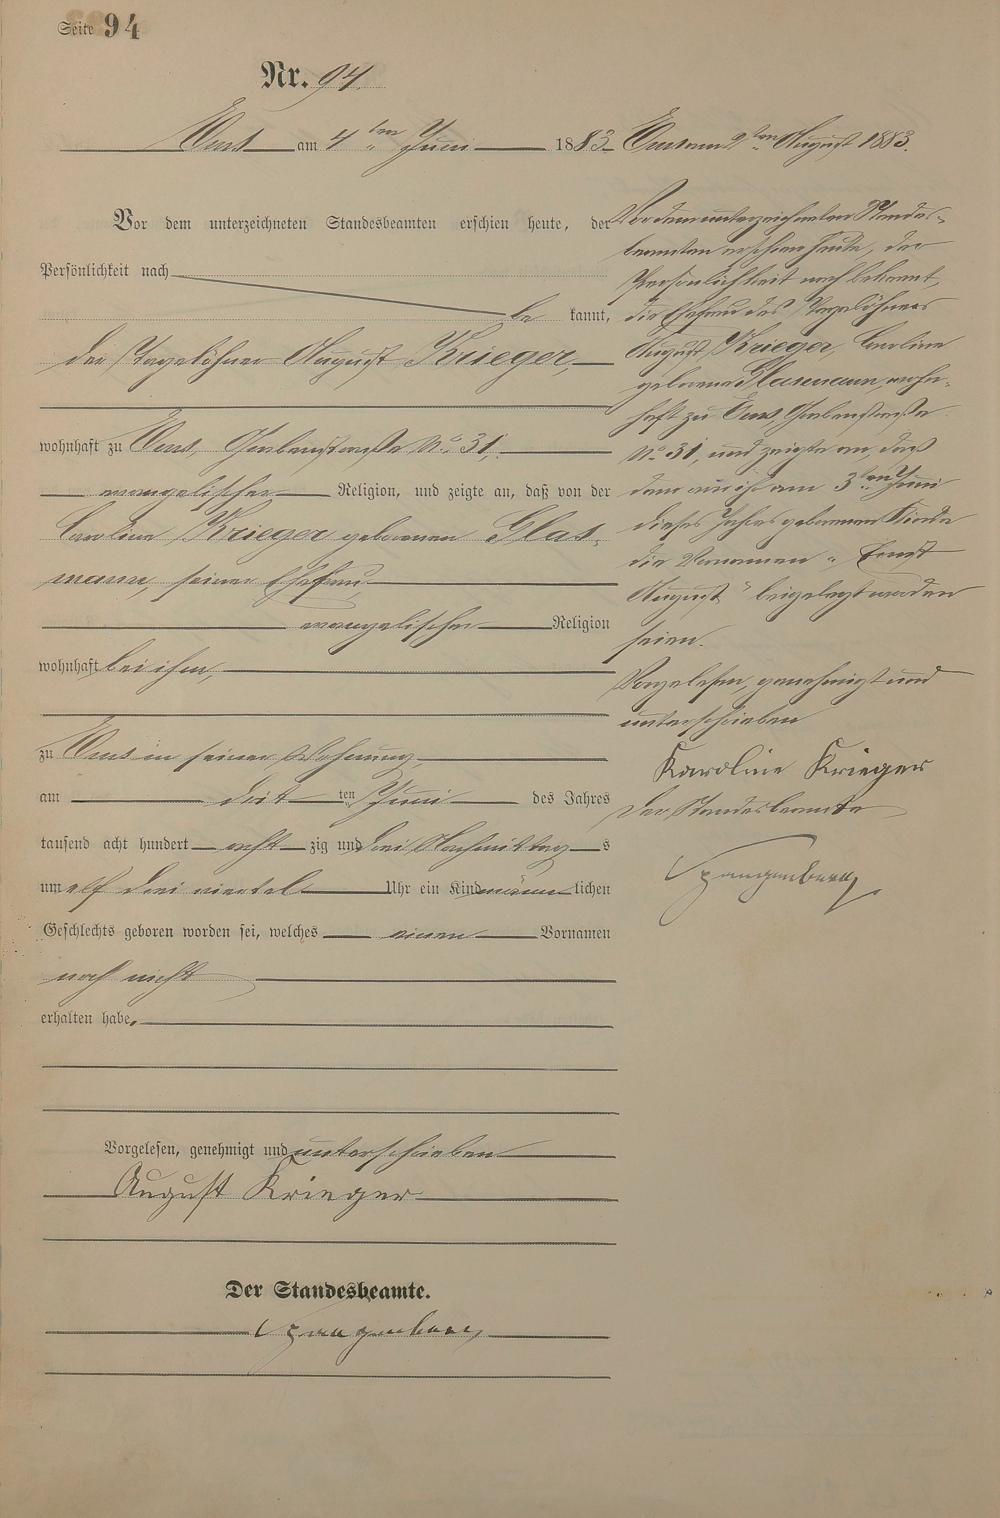 Seite 94
Nr. 94.
Ems am 4ten Juni 1883.
Vor dem unterzeichneten Standesbeamten erschien heute, der
Persönlichkeit nach
be kannt,
der Tagelöhner August Krieger,
wohnhaft zu Ems, Grabenstraße No. 31,
evangelischer Religion, und zeigte an, daß von der
Caroline Krieger geborenen Glas-
mann, seiner Ehefrau
evangelischer Religion
wohnhaft bei ihm,
zu Ems in seiner Wohnung
am ten Juni des Jahres
tausend acht hundert acht zig und drei Nachmittag s
um elf drei viertel Uhr ein Kind männ lichen
Geschlechts geboren worden sei, welches einen Vornamen
noch nicht
erhalten habe.
Vorgelesen, genehmigt und unterschrieben
August Krieger
Der Standesbeamte.
Spangenberg
Ems am 2ten August 1883.
Vor dem unterzeichneten Standes-
beamten erschien heute, der
Persönlichkeit nach bekannt,
die Ehefrau des Tagelöhners
August Krieger, Caroline
geborene Glasmann, wohn-
haft zu Ems Grabenstraße
No. 31, und zeigte an, daß
dem am 3ten Juni
dieses Jahres geborenen Kinde
die Vornamen "Ernst
August" beigelegt worden
seien.
Vorgelesen, genehmigt und
unterschrieben
Karoline Krieger
Der Standesbeamte
Spangenberg